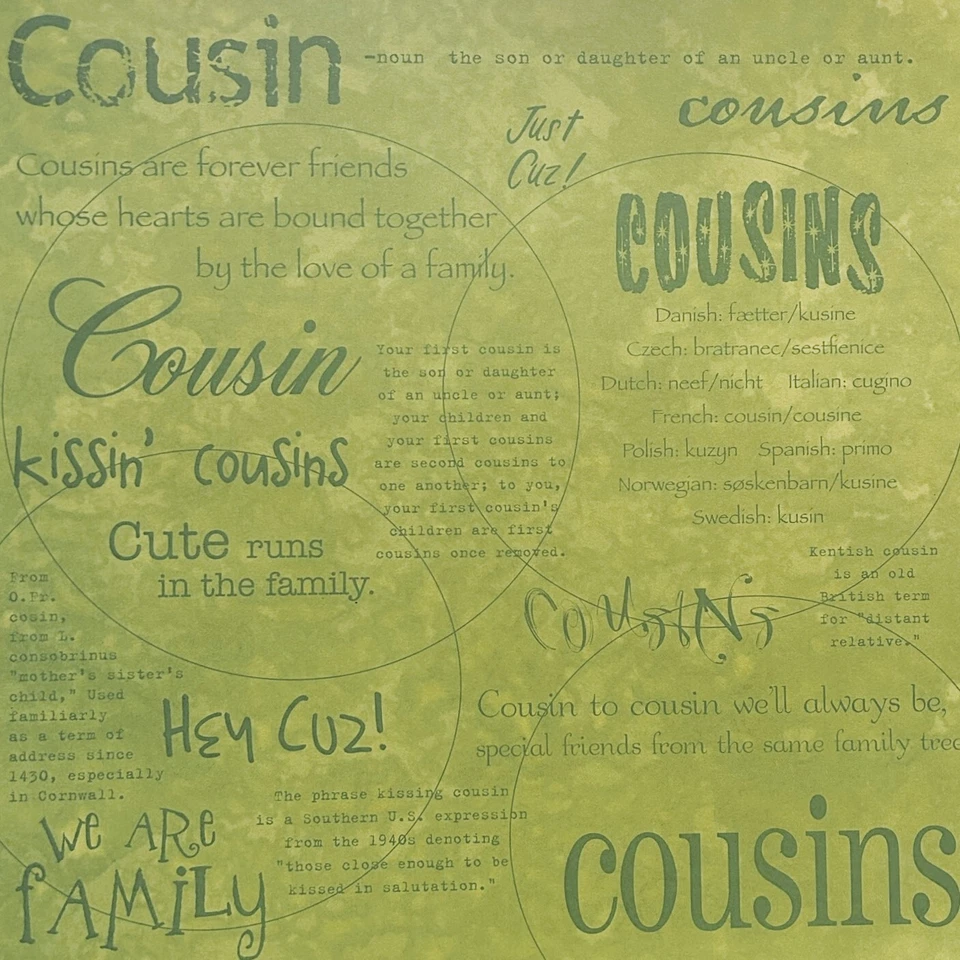 Cousin
-noun the son or daughter of an uncle or aunt.
cousins
Just
Cuz!
Cousins are forever friends
whose hearts are bound together
by the love of a family.
COUSINS
Danish: fætter/kusine
Czech: bratranec/sestfienice
Dutch: neef/nicht Italian: cugino
French: cousin/cousine
Polish: kuzyn Spanish: primo
Norwegian: søskenbarn/kusine
Swedish: kusin
Cousin
Your first cousin is
the son or daughter
of an uncle or aunt;
your children and
your first cousins
are second cousins to
one another; to you,
your first cousin's
children are first
cousins once removed.
kissin' cousins
Cute runs
in the family.
Kentish cousin
is an old
British term
for "distant
relative."
COUSINS
From
O.Fr.
cosin,
from L.
consobrinus
"mother's sister's
child," Used
familiarly
as a term of
address since
1430, especially
in Cornwall.
Hey Cuz!
Cousin to cousin we'll always be,
special friends from the same family tree
We ARe
fAMiLy
The phrase kissing cousin
is a Southern U.S. expression
from the 1940s denoting
"those close enough to be
kissed in salutation."
cousins